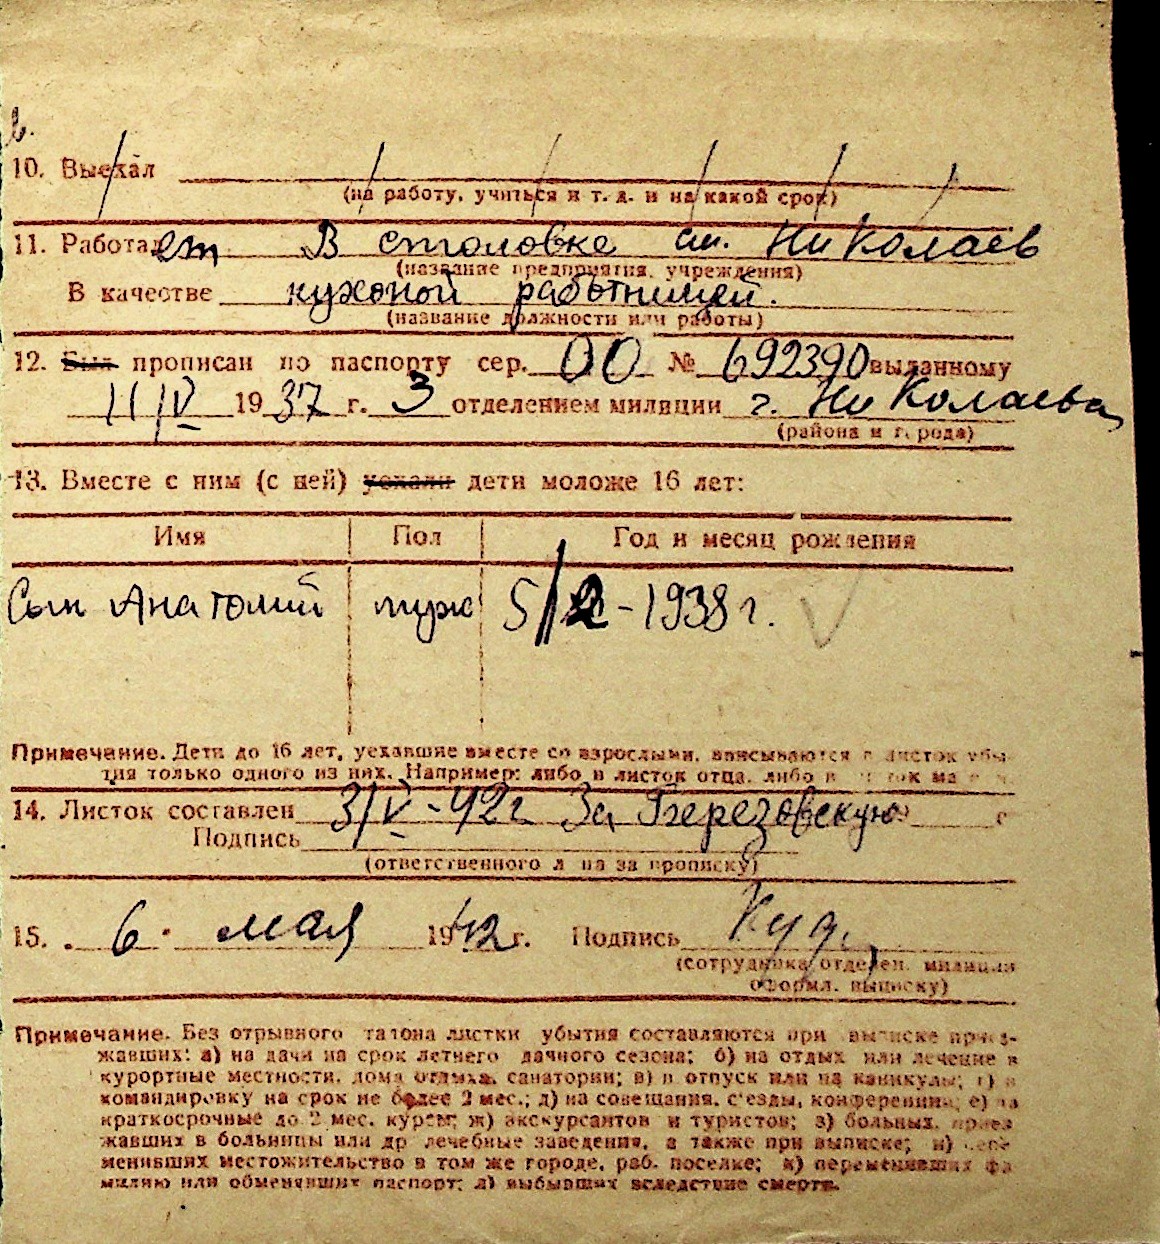 в.
10. Выехал
(на работу, учиться и т. д. и на какой срок)
11. Работает В столовке ст. Николаев
(название предприятия, учреждения)
В качестве кухоной работницей.
(название должности или работы)
12. Был прописан по паспорту сер. 00 № 692390 выданному
11/IV 1937 г. 3 отделением милиции г. Николаева
(района и города)
13. Вместе с ним (с ней) уехали дети моложе 16 лет:
Имя Пол Год и месяц рождения
Сын Анатолий муж 5/2-1938 г. √
Примечание. Дети до 16 лет, уехавшие вместе со взрослыми, вписываются в листок убы-
тия только одного из них. Например: либо в листок отца, либо в
14. Листок составлен 3/V-42 г За Березовскую г
Подпись
(ответственного лица за прописку)
15. 6. мая 1942 г. Подпись Куд.
(сотрудника отделен. милиции
оформл. выписку)
Примечание. Без отрывного талона листки убытия составляются при выписке приез-
жавших: а) на дачи на срок летнего дачного сезона; б) на отдых или лечение в
курортные местности, дома отдыха, санатории; в) в отпуск или на каникулы; г) в
командировку на срок не более 2 мес.; д) на совещания, с'езды, конференции; е) на
краткосрочные до 2 мес. курсы; ж) экскурсантов и туристов; з) больных, приез
жавших в больницы или др лечебные заведения, а также при выписке; и) пере-
менивших местожительство в том же городе, раб. поселке; к) переменивших фа
милию или обменявших паспорт; л) выбывших вследствие смерти.